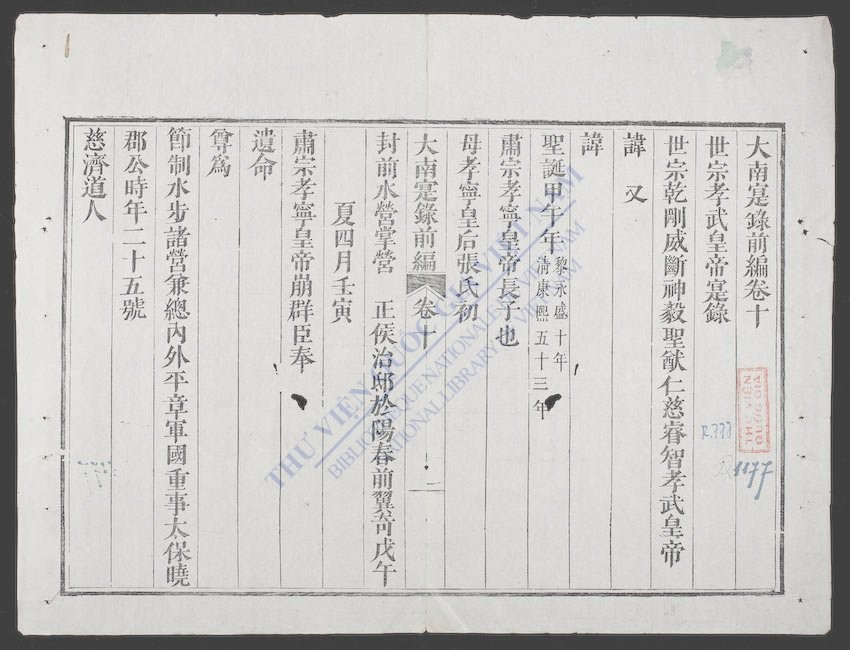 大南寔錄前編卷十
世宗孝武皇帝寔錄
世宗乾剛威斷神毅聖猷仁慈睿智孝武皇帝
諱 又
諱
聖誕甲午年
黎永盛十年
清康熙五十三年
肅宗孝寧皇帝長子也
母孝寧皇后張氏初
大南寔錄前編 卷十 一
封前水營掌營 正侯治邸於陽春前翼奇戊午
夏四月壬寅
肅宗孝寧皇帝崩群臣奉
遺命
尊為
節制水步諸營兼總內外平章軍國重事太保曉
郡公時年二十五號
慈濟道人
THƯ VIỆN QUỐC GIA VIỆT NAM
BIBLIOTHÈQUE NATIONALE DU VIETNAM
NATIONAL LIBRARY OF VIETNAM
THƯ VIỆN
QUỐC GIA
R.770
1177